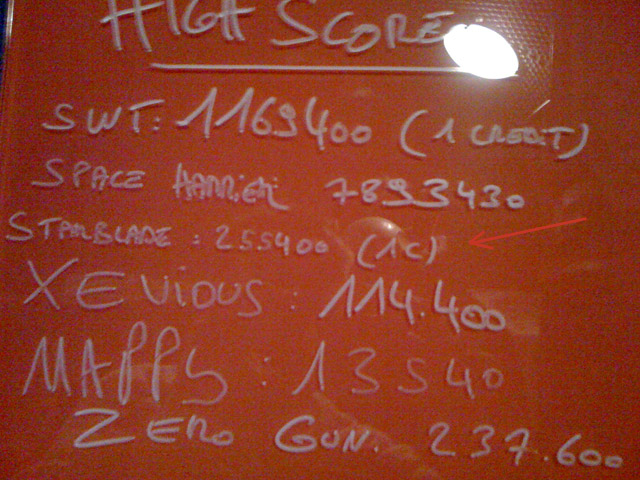 HIGH SCORE
SWT: 1169400 (1 CREDIT)
SPACE HARRIER 7893430
STARBLADE : 255400 (1C)
XEVIOUS : 114.400
MAPPY : 13540
ZERO GUN. 237.600